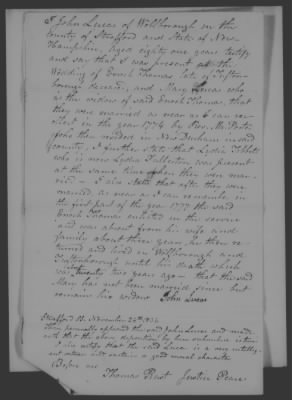 I John Lucas of Wolfborough in the
County of Strafford and State of New
Hampshire, Aged eighty one years testify
and say that I was present at the
Wedding of Enoch Thomas, late of Tufton-
borough deceased, and Mary Lucas who
is the widow of said Enoch Thomas, that
they were married as near as I can re-
collect in the year 1774 by Rev. Mr. Porter
who then resided in New Durham in said
County, I further state that Lydia Tibbets
who is now Lydia Fullerton was present
at the same time when they were mar-
ried — I also state that after they were
married, as near as I can remember in
the first part of the year 1777 the said
Enoch Thomas enlisted in the service
and was absent from his wife and
family about three years, he then re-
turned and lived in Wolfborough and
Tuftonborough until his death which
was twenty two years ago — that the said
Mary has not been married since but
remains his widow John Lucas
Strafford SS. November 24th 1836
Then personally appeared the said John Lucas and made
oath that the above deposition by him subscribed is true
I also certify that the said Lucas is a very intelli-
gent man and sustains a good moral character
Before me
Thomas Justice Peace